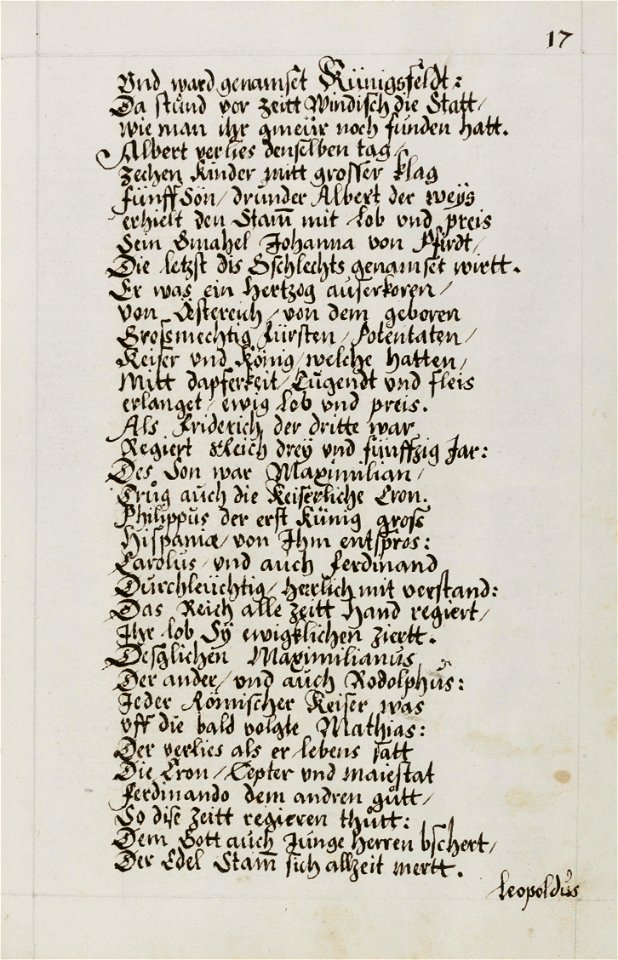 17
Vnd ward genamset Künigsfeldt:
Da stůnd vor zeitt Windisch die Statt/
wie man ihr gmeür noch funden hatt.
Albert verlies denselben tag/
zechen Kinder mitt grosser klag
fünff Sön/ drunder Albert der weÿs
erhielt den Stam̄ mit lob vnd preis
Sein Gmahel Johanna von Pfirdt/
Die letzst dis Gschlechts genamset wirtt.
Er was ein Hertzog auserkoren/
von Östereich/ von dem geboren
Grosmechtig Fürsten/ Potentaten/
Keiser vnd König/ welche hatten/
Mitt dapferkeit/ Tugendt vnd fleis
erlanget/ ewig lob vnd preis.
Als Friderich der dritte war
Regiert s Reich dreÿ vnd fünffzig Jar:
Des Son war Maximilian/
Trůg auch die Keiserliche Cron.
Philippus der erst Künig gross
Hispaniæ/ von Jhm entspros:
Carolus/ vnd auch Ferdinand
Durchleüchtig/ herrlich mit verstand:
Das Reich alle zeitt Hand regiert/
Jhr lob Sÿ ewigklichen ziertt.
Desglichen Maximilianus
Der ander/ vnd auch Rodolphus:
Jeder Römischer Keiser was
vff die bald volgte Mathias:
Der verlies als er lebens satt
Die Cron/ Septer vnd maiestat
Ferdinando dem andren gůtt/
So dise zeitt regieren thůtt:
Dem Gott auch Junge Herren bschert/
Der Edel Stam̄ sich allzeit mertt.
Leopoldus